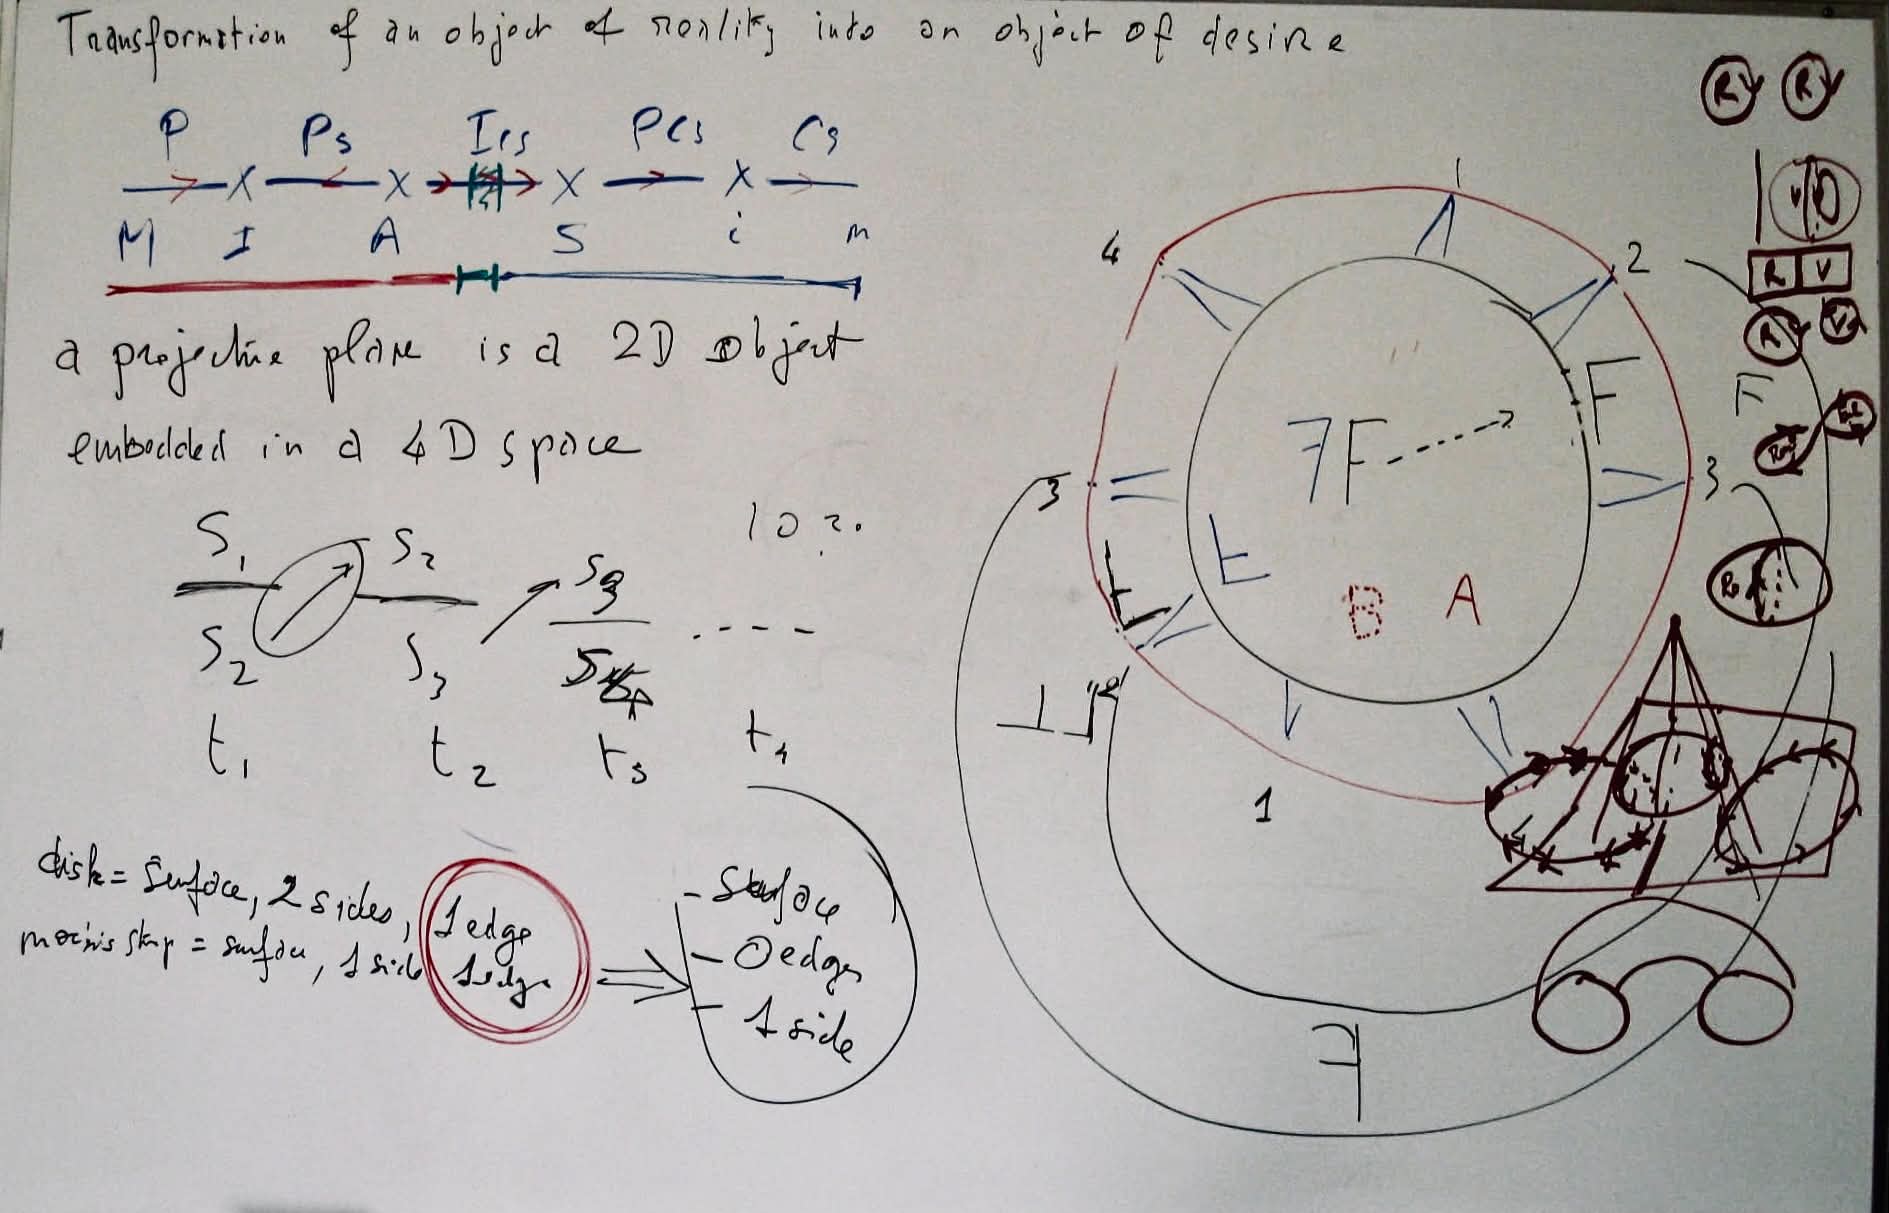 Transformation of an object of reality into an object of desire
P Ps Ics PCs Cs
X X X X
M I A S i m
a projective plane is a 2D object
embedded in a 4D space
S1 S2 S3
S2 S3
t1 t2 t3 t4
10 ?.
disk = surface, 2 sides, 1 edge
moebius strip = surface, 1 side 1 edge
- surface
- 0 edge
- 1 side
1
4 2
3 3
2
1
7 F F
F
B A
R R
V
R V
R V
R